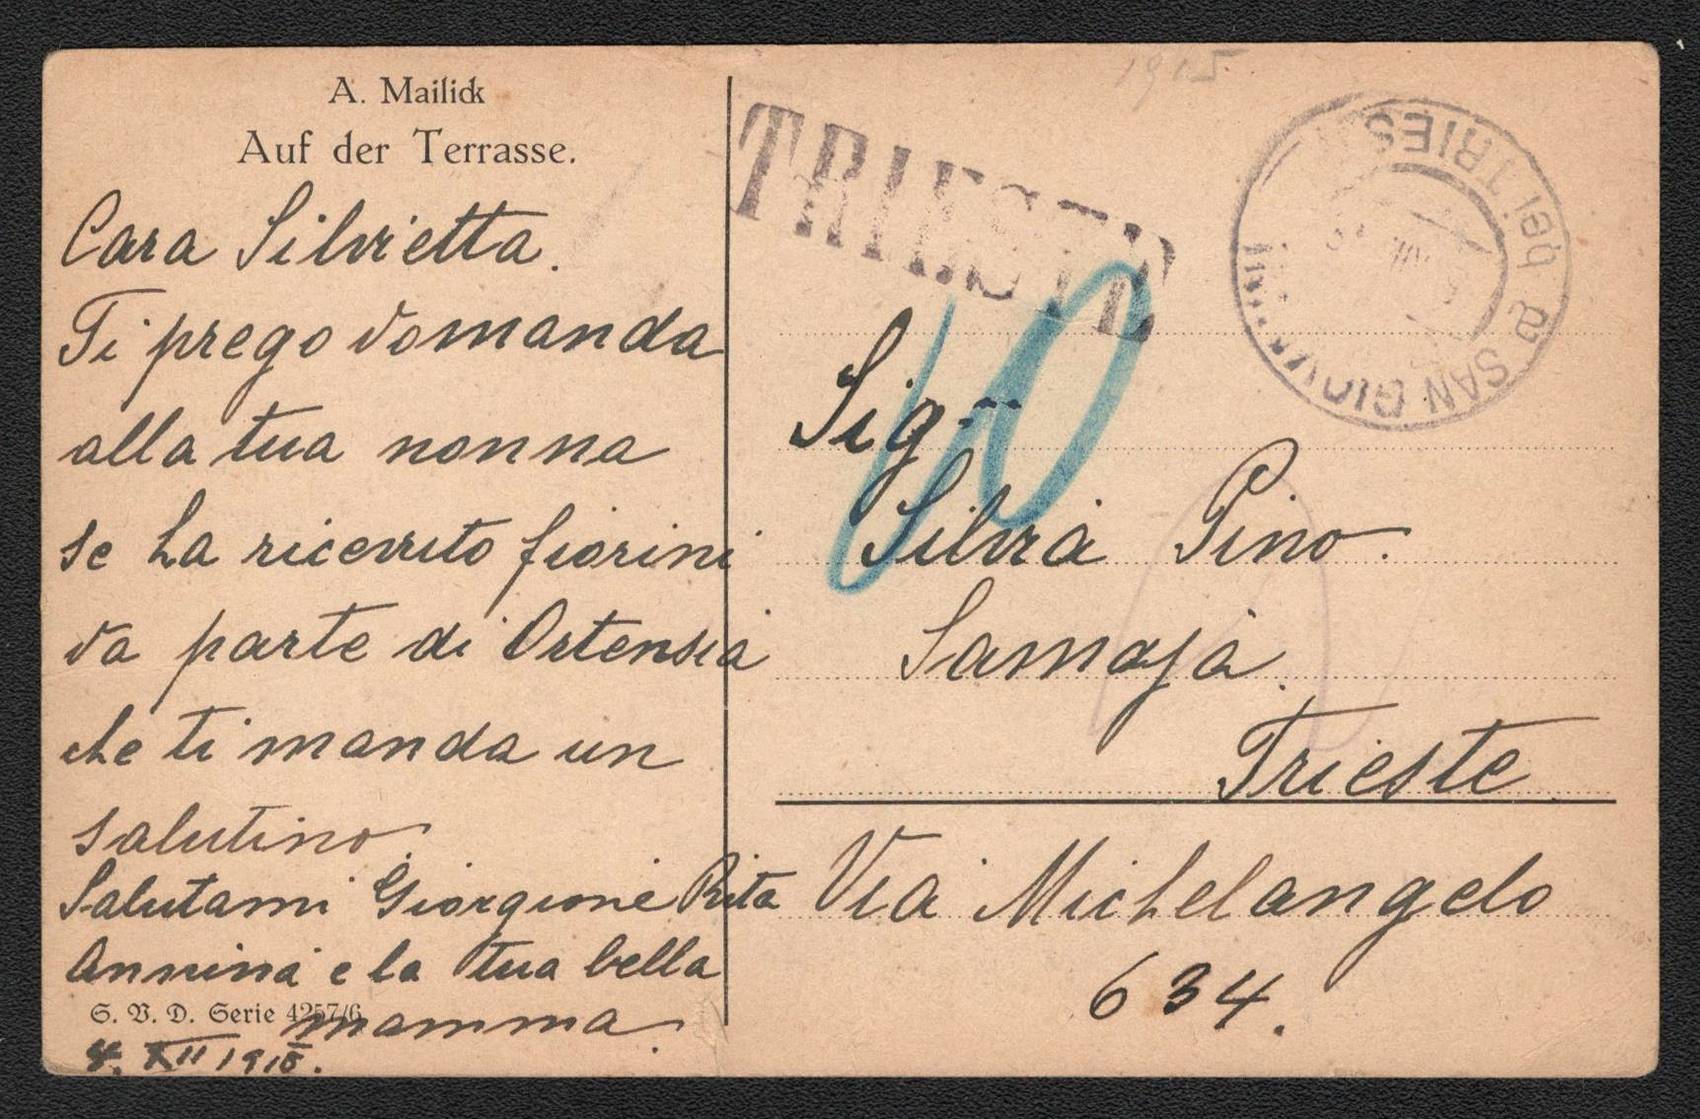 A. Mailick
Auf der Terrasse.
Cara Silvietta.
Ti prego domanda
alla tua nonna
se ha ricevuto fiorini
da parte di Ortensia
che ti manda un
salutino.
Salutami Giorgione Rita
Annina e la tua bella
mamma.
S. V. D. Serie 4257/6
XII 1915.
1915
TRIESTE
SAN GIOV bei TRIES
10
Sig-
Silvia Pino
Samaja.
Trieste
Via Michelangelo
634.